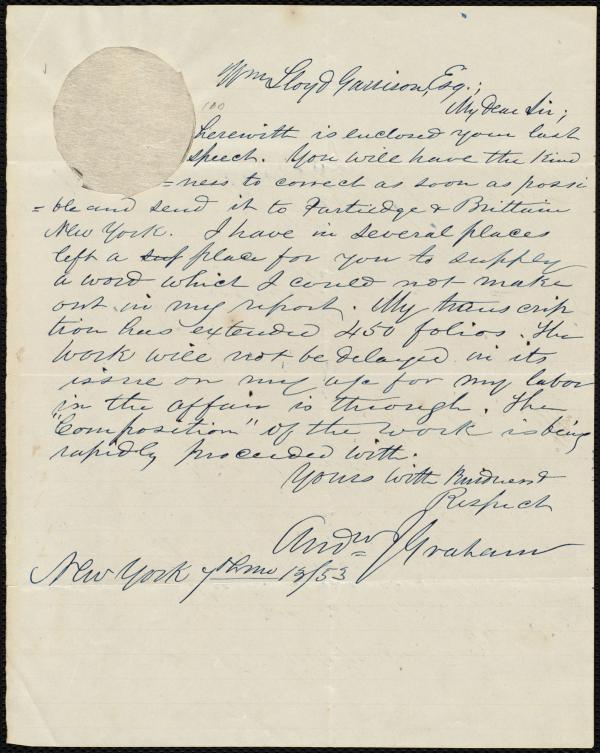 Wm Lloyd Garrison, Esq.;
My Dear Sir;
100
herewith is enclosed your last
speech. You will have the kind
=ness to correct as soon as possi
=ble and send it to Partridge & Brittain
New York. I have in several places
left a place for you to supply
a word which I could not make
out in my report. My transcrip
tion has extended 450 folios. The
work will not be delayed in its
issue on my a/c for my labor
in the affair is through. The
"Composition" of the work is being
rapidly proceeded with.
Yours with Kindness &
Respect
Andw J Graham
New York 7th mo 13/53